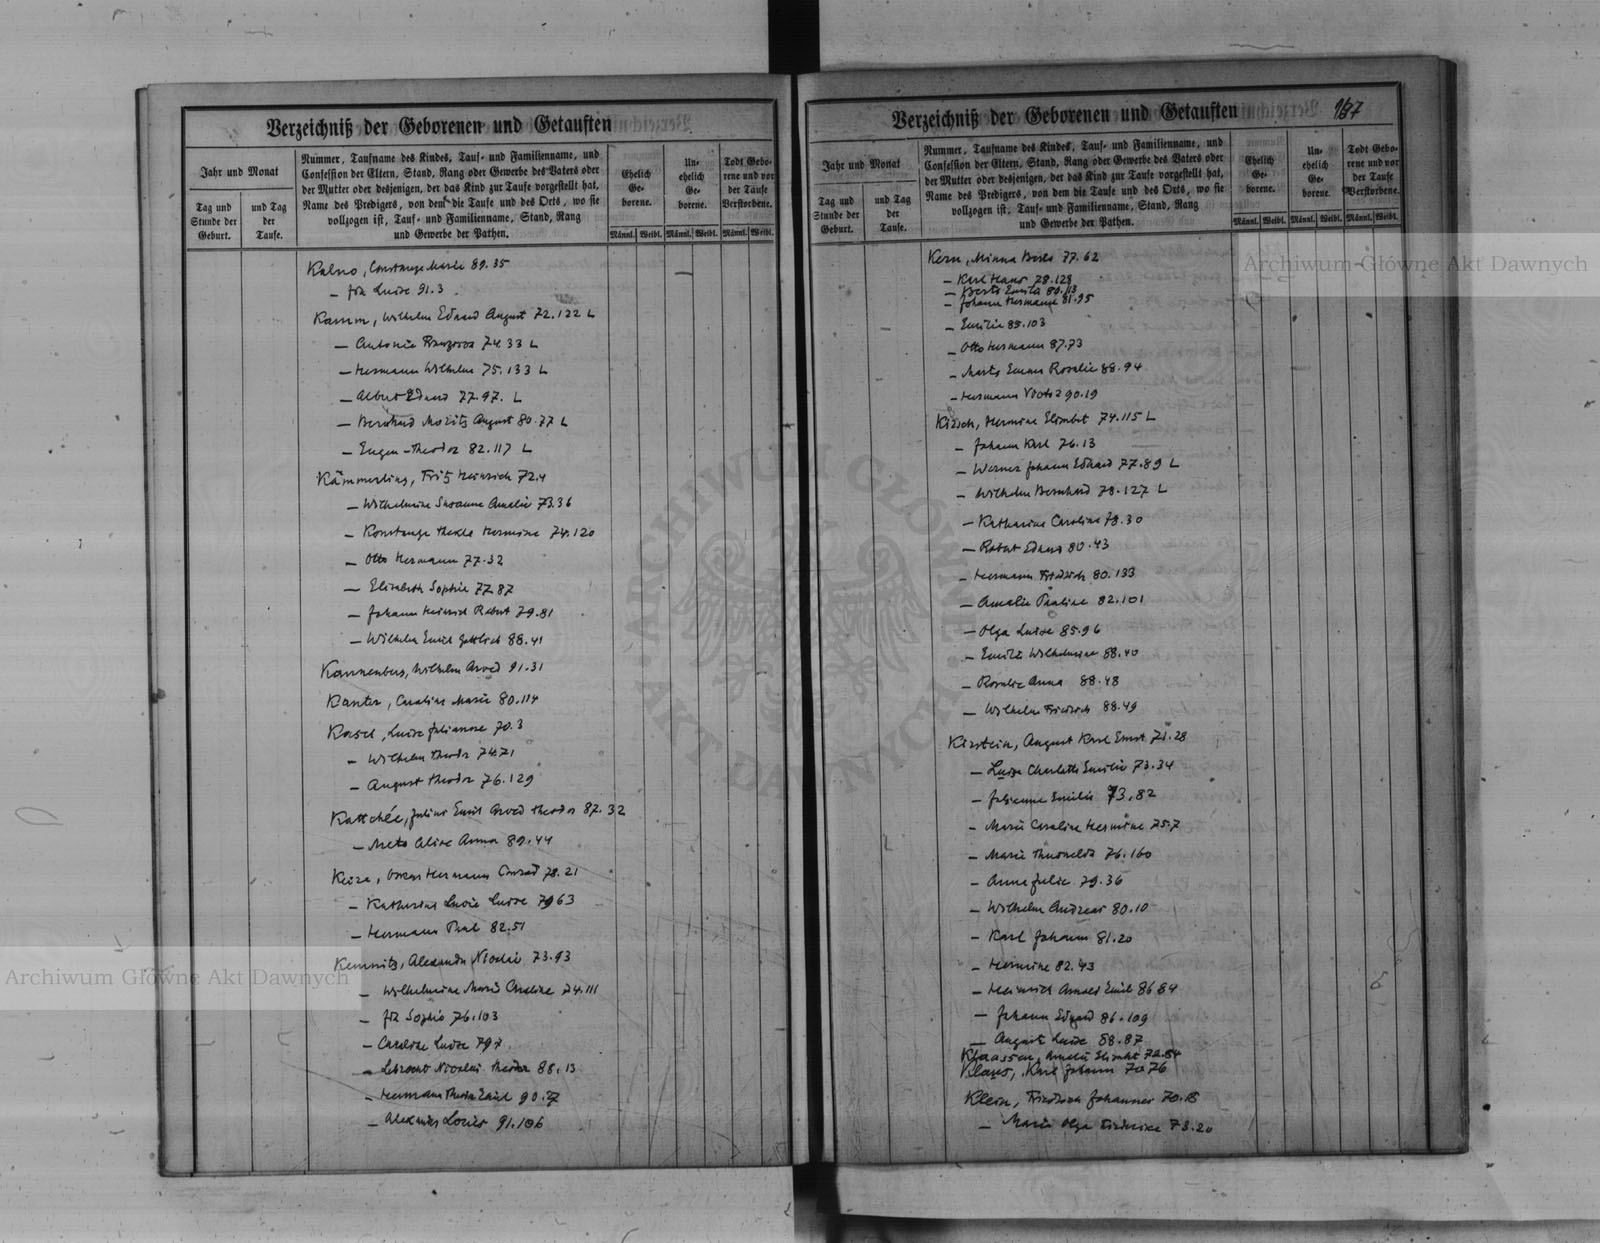 Verzeichniß der Geborenen und Getauften
Jahr und Monat
Tag und Stunde der Geburt.
und Tag der Taufe.
Nummer, Taufname des Kindes, Tauf- und Familienname, und
Confession der Eltern, Stand, Rang oder Gewerbe des Vaters oder
der Mutter oder desjenigen, der das Kind zur Taufe vorgestellt hat,
Name des Predigers, von dem die Taufe und des Orts, wo sie
vollzogen ist, Tauf- und Familienname, Stand, Rang
und Gewerbe der Pathen.
Ehelich Ge-borene.
Un-ehelich Ge-borene.
Todt Gebo-rene und vor der Taufe Verstorbene.
Männl. Weibl. Männl. Weibl. Männl. Weibl.
Kalno, Constanze Marie 89.35
— Luise 91.3
Kamm, Wilhelm Eduard August 72.122 L
— Antonie 74.33 L
— Hermann Wilhelm 75.133 L
— Albert Eduard 77.97. L
— Bernhard Moritz August 80.77 L
— Eugen Theodor 82.117 L
Kämmerling, Fritz Heinrich 72.4
— Wilhelmine Susanne Amalie 73.36
— Konstanze Thekla Hermine 74.120
— Otto Hermann 77.32
— Elisabeth Sophie 77.87
— Johann Heinrich Robert 79.81
— Wilhelm Emil Gottlieb 88.41
Kannenberg, Wilhelm Arved 91.31
Kanter, Caroline Marie 80.114
Kasel, Luise Julianne 70.3
— Wilhelm Theodor 74.71
— August Theodor 76.129
Kattchée, Julius Emil Arved Theodor 82.32
— Meta Alice Anna 89.44
Keize, Oskar Hermann Conrad 78.21
— Katharina Lucie Luise 79 63
— Hermann Paul 82.51
Kemnitz, Alexander Nicolai 73.93
— Wilhelmine Marie Caroline 74.111
— Ida Sophie 76.103
— Caroline Luise 79 7
— Leberecht Nicolai Theodor 88.13
— Hermann Theodor Emil 90.27
— Alexander Louis 91.106
Verzeichniß der Geborenen und Getauften
197
Jahr und Monat
Tag und Stunde der Geburt.
und Tag der Taufe.
Nummer, Taufname des Kindes, Tauf- und Familienname, und
Confession der Eltern, Stand, Rang oder Gewerbe des Vaters oder
der Mutter oder desjenigen, der das Kind zur Taufe vorgestellt hat,
Name des Predigers, von dem die Taufe und des Orts, wo sie
vollzogen ist, Tauf- und Familienname, Stand, Rang
und Gewerbe der Pathen.
Ehelich Ge-borene.
Un-ehelich Ge-borene.
Todt Gebo-rene und vor der Taufe Verstorbene.
Männl. Weibl. Männl. Weibl. Männl. Weibl.
Kern, Minna Berta 77.62
— Karl Hans 78.128
— Berta Emilie 80.113
— Johann Hermann 81.95
— Emilie 85.103
— Otto Hermann 87.73
— Marta Emma Rosalie 88.94
— Hermann Victor 90.19
Kirsch, Hermine Elisabet 74.115 L
— Johann Karl 76.13
— Werner Johann Eduard 77.89 L
— Wilhelm Bernhard 78.127 L
— Katharine Caroline 78.30
— Robert Eduard 80.43
— Hermann Friedrich 80.133
— Amalie Pauline 82.101
— Olga Luise 85.96
— Emilie Wilhelmine 88.40
— Rosalie Anna 88.48
— Wilhelm Friedrich 88.49
Kirstein, August Karl Ernst 71.28
— Luise Charlotte Emilie 73.34
— Julianne Emilie 73.82
— Marie Caroline Hermine 75.7
— Marie Thusnelda 76.160
— Anna Julie 79.36
— Wilhelm Andreas 80.10
— Karl Johann 81.20
— Hermine 82.43
— Heinrich Arnold Emil 86 84
— Johann Eduard 86.109
— August Luise 88.87
Klaassen, Amalie Elisabet 72.84
Klaus, Karl Johann 70 76
Klein, Friedrich Johannes 70.18
— Marie Olga Friederike 73.20
Archiwum Główne Akt Dawnych
Archiwum Główne Akt Dawnych
ARCHIWUM GŁÓWNE AKT DAWNYCH